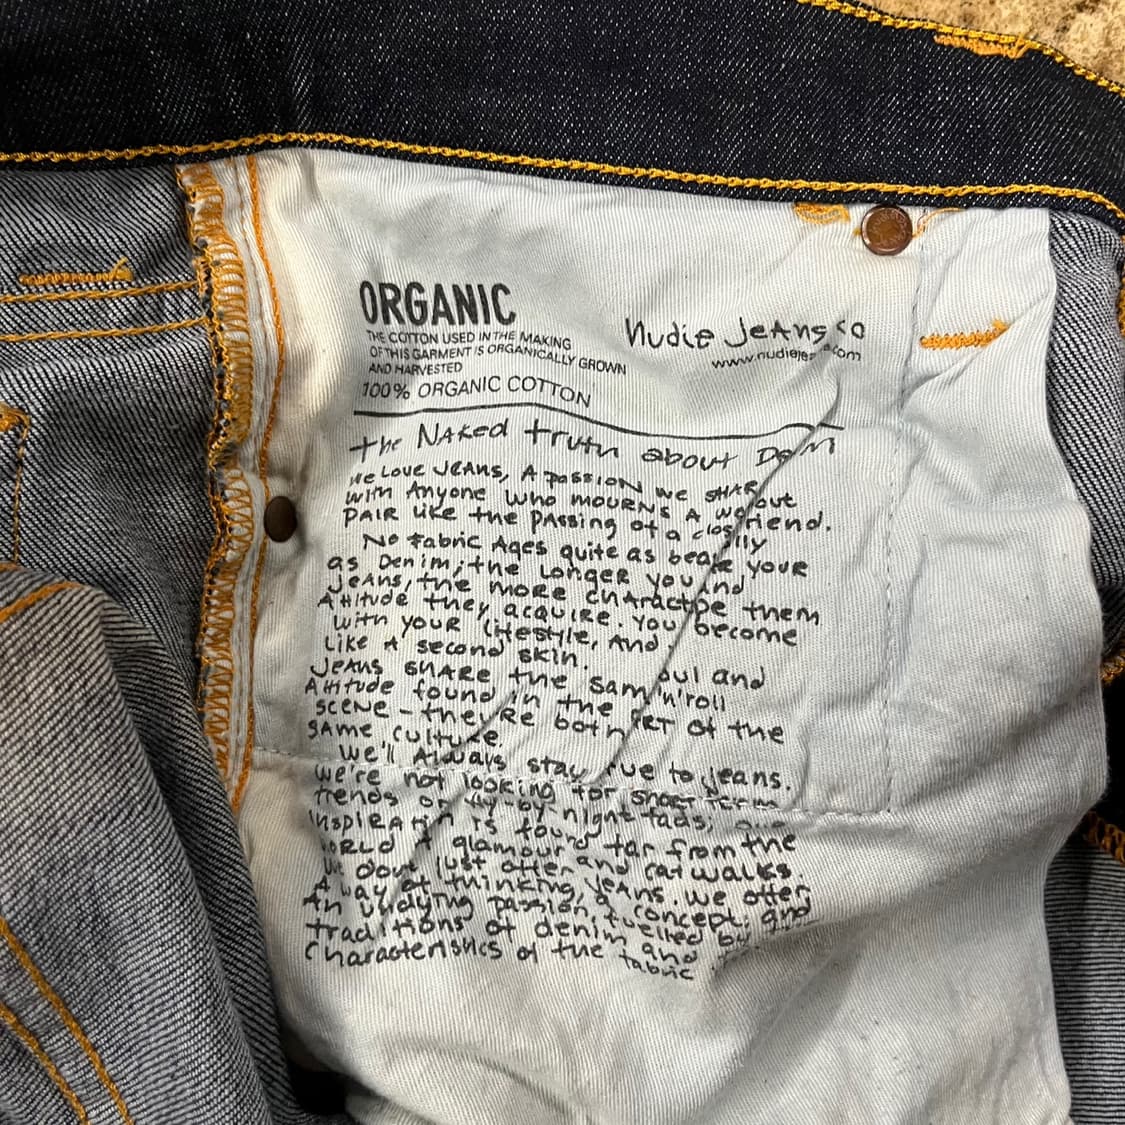 ORGANIC
THE COTTON USED IN THE MAKING
OF THIS GARMENT IS ORGANICALLY GROWN
AND HARVESTED
100% ORGANIC COTTON
Nudie Jeans co
www.nudieje .com
the NAKed truth about De M
We Love JEANS, A passion we SHAR
with Anyone who mourns A wo out
PAIR Like the PAssing of a clos riend.
No Fabric Ages quite as bea lly
as Denim; the Longer you your
Jeans, the more charact nd
Attitude they acquire. You pe them
with your Lifestyle, And become
Like A second skin.
Jeans SHARE the sam oul and
Attitude found in the 'n'roll
scene - they're both of the
SAME culture.
We'll Always stay rue to jeans.
We're not looking for short term
trends or fly-by-night fads;
Inspiration is found far from the
glamour and catwalks.
We don't just offer jeans. We offer
A way of thinking, a concept, and
An undying passion, fuelled by
traditions of denim and
characteristics of the fabric